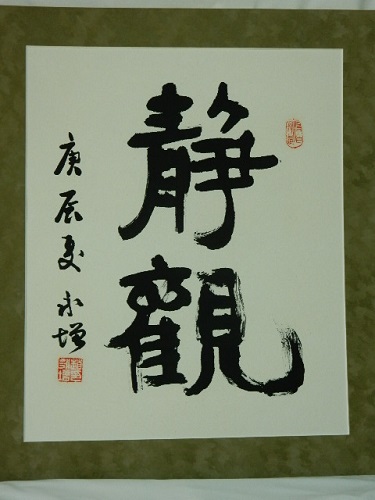 靜觀
庚辰夏 永增